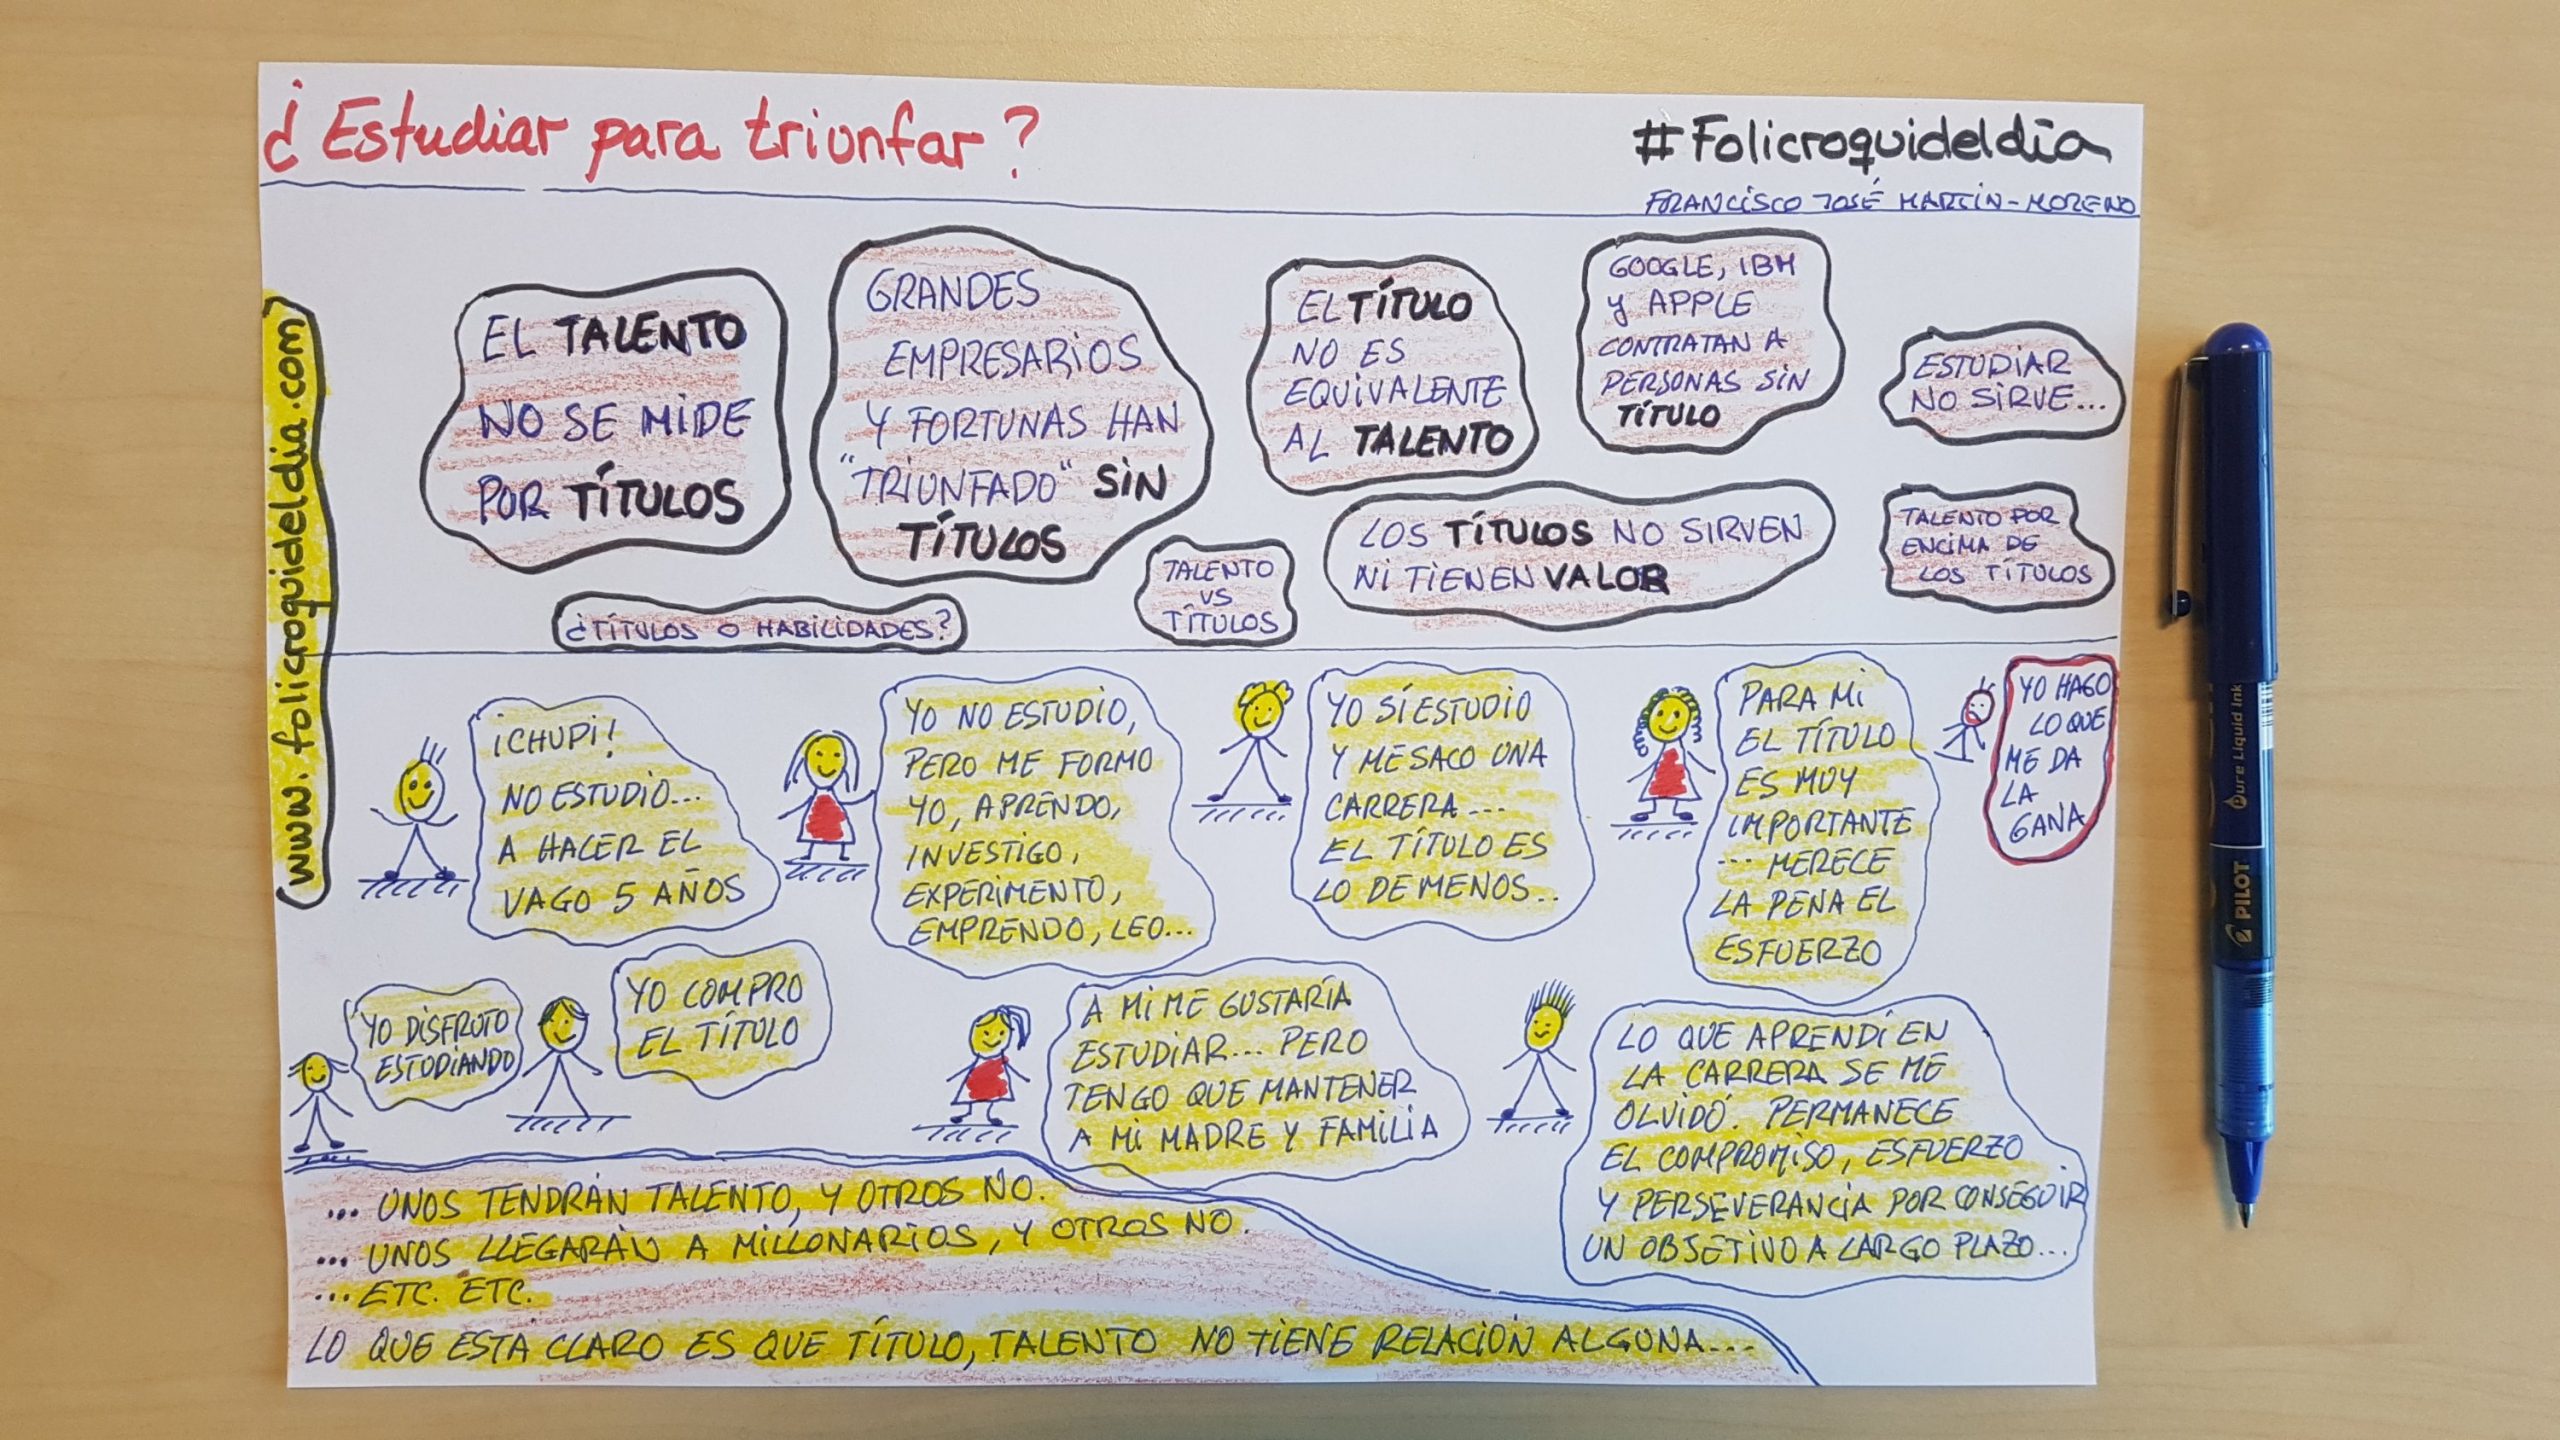 ¿Estudiar para triunfar?
#Folicroquideldía
FRANCISCO JOSÉ MARTÍN-MORENO
www.folicroquideldia.com
EL TALENTO
NO SE MIDE
POR TÍTULOS
GRANDES
EMPRESARIOS
Y FORTUNAS HAN
"TRIUNFADO" SIN
TÍTULOS
EL TÍTULO
NO ES
EQUIVALENTE
AL TALENTO
GOOGLE, IBM
Y APPLE
CONTRATAN A
PERSONAS SIN
TÍTULO
ESTUDIAR
NO SIRVE...
¿TÍTULOS O HABILIDADES?
TALENTO
VS
TÍTULOS
LOS TÍTULOS NO SIRVEN
NI TIENEN VALOR
TALENTO POR
ENCIMA DE
LOS TÍTULOS
¡CHUPI!
NO ESTUDIO...
A HACER EL
VAGO 5 AÑOS
YO NO ESTUDIO,
PERO ME FORMO
YO, APRENDO,
INVESTIGO,
EXPERIMENTO,
EMPRENDO, LEO...
YO SÍ ESTUDIO
Y ME SACO UNA
CARRERA...
EL TÍTULO ES
LO DE MENOS..
PARA MI
EL TÍTULO
ES MUY
IMPORTANTE
... MERECE
LA PENA EL
ESFUERZO
YO HAGO
LO QUE
ME DA
LA
GANA
YO DISFRUTO
ESTUDIANDO
YO COMPRO
EL TÍTULO
A MI ME GUSTARÍA
ESTUDIAR... PERO
TENGO QUE MANTENER
A MI MADRE Y FAMILIA
LO QUE APRENDÍ EN
LA CARRERA SE ME
OLVIDÓ. PERMANECE
EL COMPROMISO, ESFUERZO
Y PERSEVERANCIA POR CONSEGUIR
UN OBJETIVO A LARGO PLAZO...
... UNOS TENDRÁN TALENTO, Y OTROS NO.
... UNOS LLEGARÁN A MILLONARIOS, Y OTROS NO.
... ETC. ETC.
LO QUE ESTA CLARO ES QUE TÍTULO, TALENTO NO TIENE RELACIÓN ALGUNA...
Pure Liquid Ink
PILOT